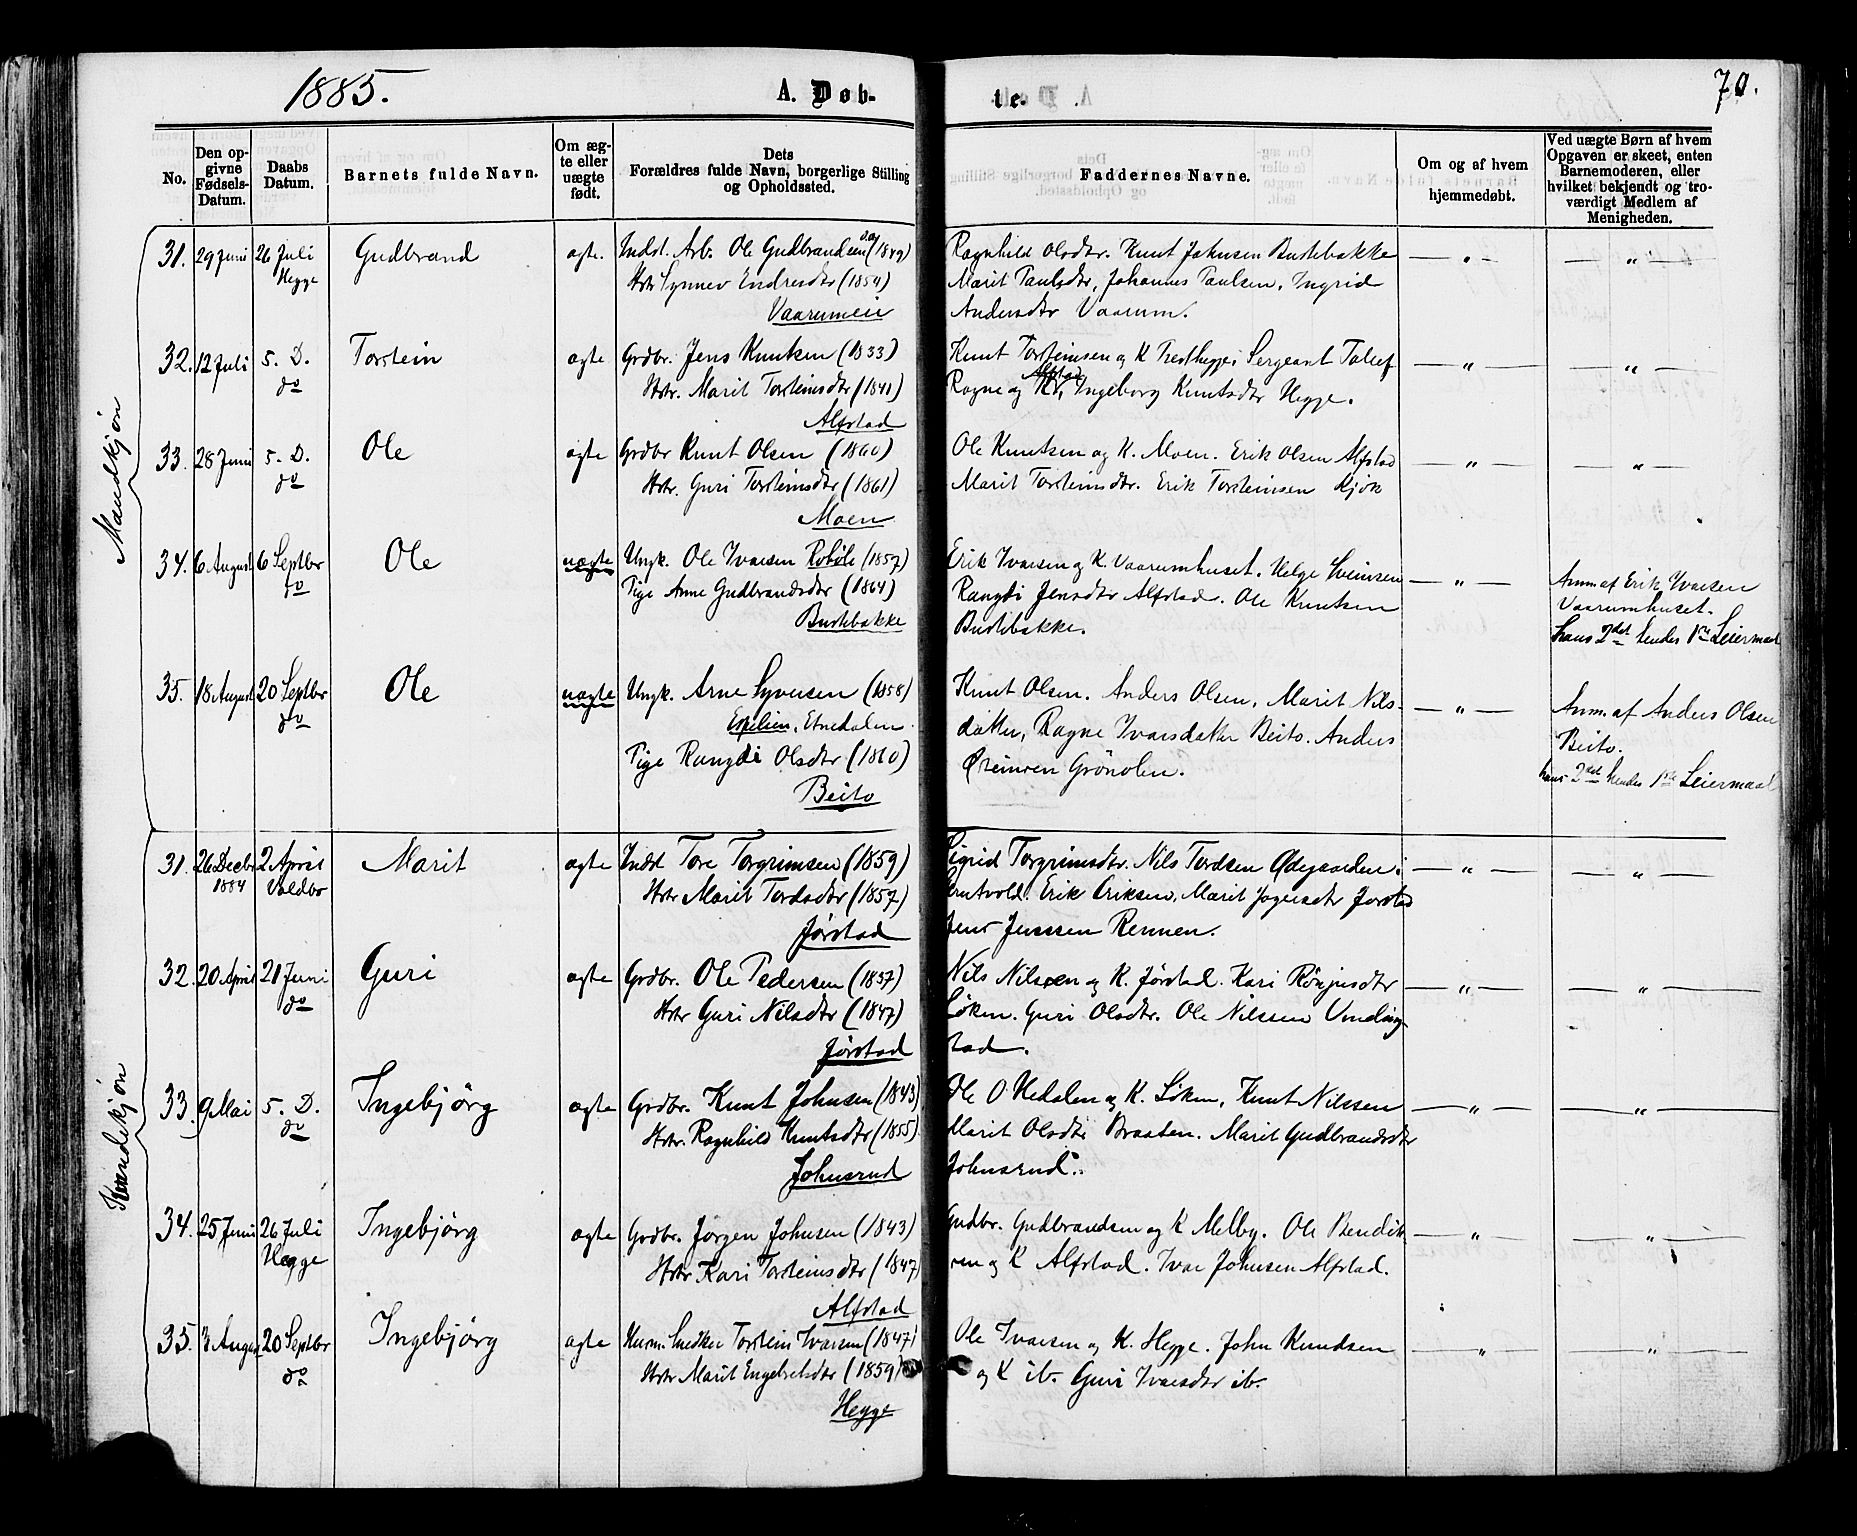 1885.
A. Døb-
te.
70.
No.
Den op-
givne
Fødsels-
Datum.
Daabs
Datum.
Barnets fulde Navn.
Om æg-
te eller
uægte
født.
Dets
Forældres fulde Navn, borgerlige Stilling
og Opholdssted.
Faddernes Navne.
Om og af hvem
hjemmedøbt.
Ved uægte Børn af hvem
Opgaven er skeet, enten
Barnemoderen, eller
hvilket bekjendt og tro-
værdigt Medlem af
Menigheden.
Mandkjøn
31. 29 Juni 26 Juli Gudbrand ægte. Indst. Arb. Ole Gudbrandsen (1849) Ragnhild Olsdtr. Knut Johnsen Bustebakke
Hegge Hstr Synnev Endresdtr (1854) Marit Paulsdtr, Johannes Paulsen, Ingrid
Vaarumeie Andersdtr Vaarum.
32. 12 Juli 5. D. Torstein ægte Grdbr. Jens Knutsen (1833) Knut Torsteinsen og K Tredhegge; Sergeant Tollef
do Hstr. Marit Torsteinsdtr (1841) Rogne og K. Alfstad, Ingeborg Knutsdtr Hegge.
Alfstad
33. 28 Juni 5. D. Ole ægte Grdbr Knut Olsen (1860) Ole Knutsen og K. Moen. Erik Olsen Alfstad
do Hstr. Guri Torsteinsdtr (1861) Marit Torsteinsdtr. Erik Torsteinsen Kjøk
Moen
34. 6 August 6 Septbr Ole uægte Ungk. Ole Ivarsen Robøle (1857) Erik Ivarsen og K. Vaarumhuset. Helge Sveinsen
do Pige Anne Gudbrandsdtr (1864) Rangdi Jensdtr Alfstad. Ole Knutsen
Bustebakke Bustebakke.
Anm. af Erik Ivarsen
Vaarumhuset.
hans 2det hendes 1ste Leiermaal
35. 18 August 20 Septbr Ole uægte Ungk. Arne Syversen (1858) Knut Olsen. Anders Olsen, Marit Nils-
do Espelien, Etnedalen. datter, Ragne Ivarsdatter Beito. Anders
Pige Rangdi Olsdtr (1860) Østensen Grönolen.
Beito
Anm. af Anders Olsen
Beito.
hans 2det hendes 1ste Leiermaal
Kvindekjøn
31. 26 Decbr 2 April Marit ægte Indst Tore Torgrimsen (1859) Sigrid Torgrimsdtr. Nils Tordsen Ødegaarden i
1884 Voldbo Hstr Marit Tordsdtr (1857) Erik Eriksen, Marit Jørstad
Jørstad Jens Jenssen Rennen.
32. 20 April 21 Juni Guri ægte Grdbr. Ole Pedersen (1837) Nils Nilsen og K. Jørstad. Kari
do Hstr Guri Nilsdtr (1847) Løken. Guri Olsdtr. Ole Nilssen Vinding-
Jørstad stad.
33. 9 Mai 5. D. Ingebjörg ægte Grdbr. Knut Johnsen (1843) Ole O Hedalen og K. Löken, Knut Nilssen
do Hstr. Ragnhild Knutsdtr (1855) Marit Olsdtr Braaten. Marit Gudbrandsdtr
Johnsrud Johnsrud.
34. 25 Juni 26 Juli Ingebjörg ægte Grdbr. Jörgen Johnsen (1843) Gudbr. Gudbrandsen og K Melby. Ole Bendik-
Hegge Hstr Kari Torsteinsdtr (1847) sen og K Alfstad. Ivar Johnsen Alfstad.
Alfstad
35. 3 August 20 Septbr Ingebjörg ægte Husm. Snedker Torstein Ivarsen (1847) Ole Ivarsen og K. Hegge. John Knudsen
do Hstr Marit Engebretsdtr (1859) og K ib. Guri Ivarsdtr ib.
Hegge